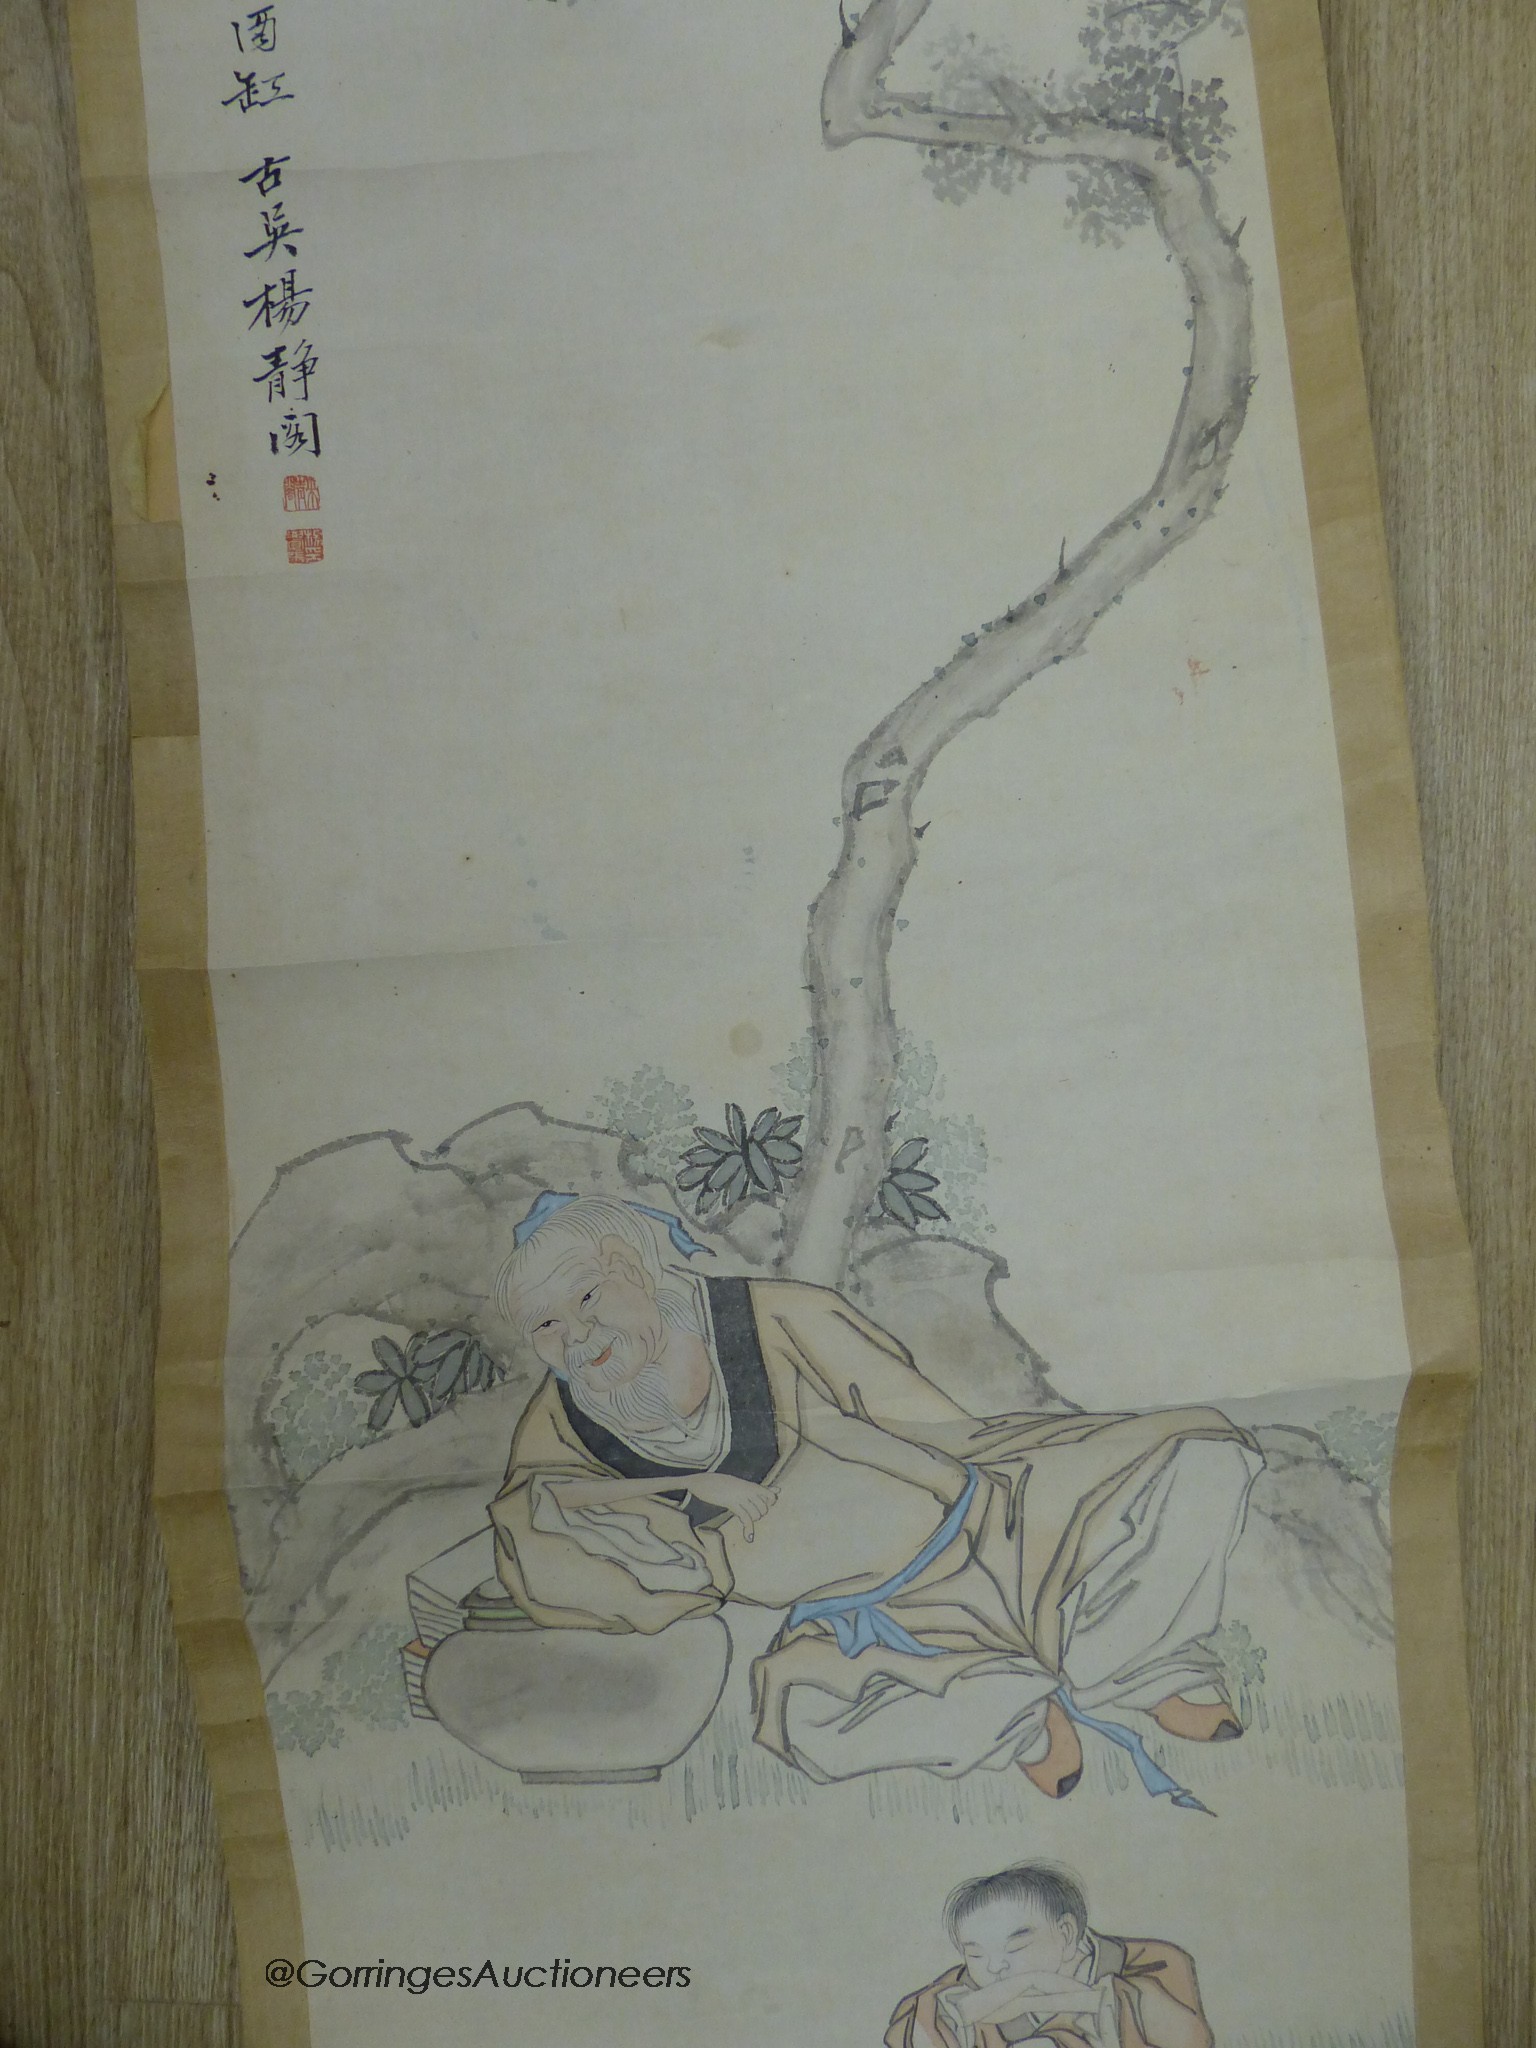 酒缸 古吳楊靜閣
@GorringesAuctioneers